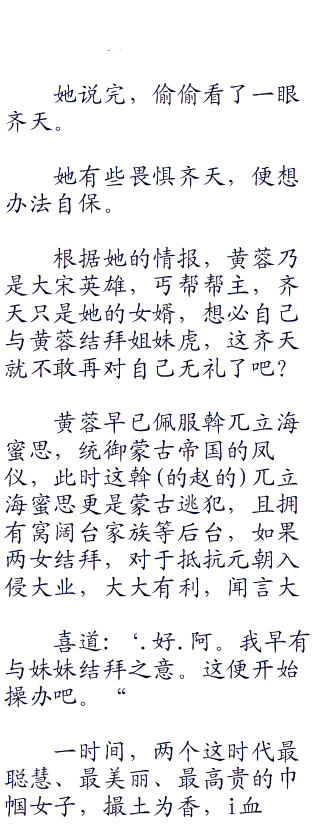 她说完，偷偷看了一眼
齐天。
她有些畏惧齐天，便想
办法自保。
根据她的情报，黄蓉乃
是大宋英雄，丐帮帮主，齐
天只是她的女婿，想必自己
与黄蓉结拜姐妹虎，这齐天
就不敢再对自己无礼了吧？
黄蓉早已佩服斡兀立海
蜜思，统御蒙古帝国的凤
仪，此时这斡(的赵的)兀立
海蜜思更是蒙古逃犯，且拥
有窝阔台家族等后台，如果
两女结拜，对于抵抗元朝入
侵大业，大大有利，闻言大
喜道：‘.好.阿。我早有
与妹妹结拜之意。这便开始
操办吧。“
一时间，两个这时代最
聪慧、最美丽、最高贵的巾
帼女子，撮土为香，i血